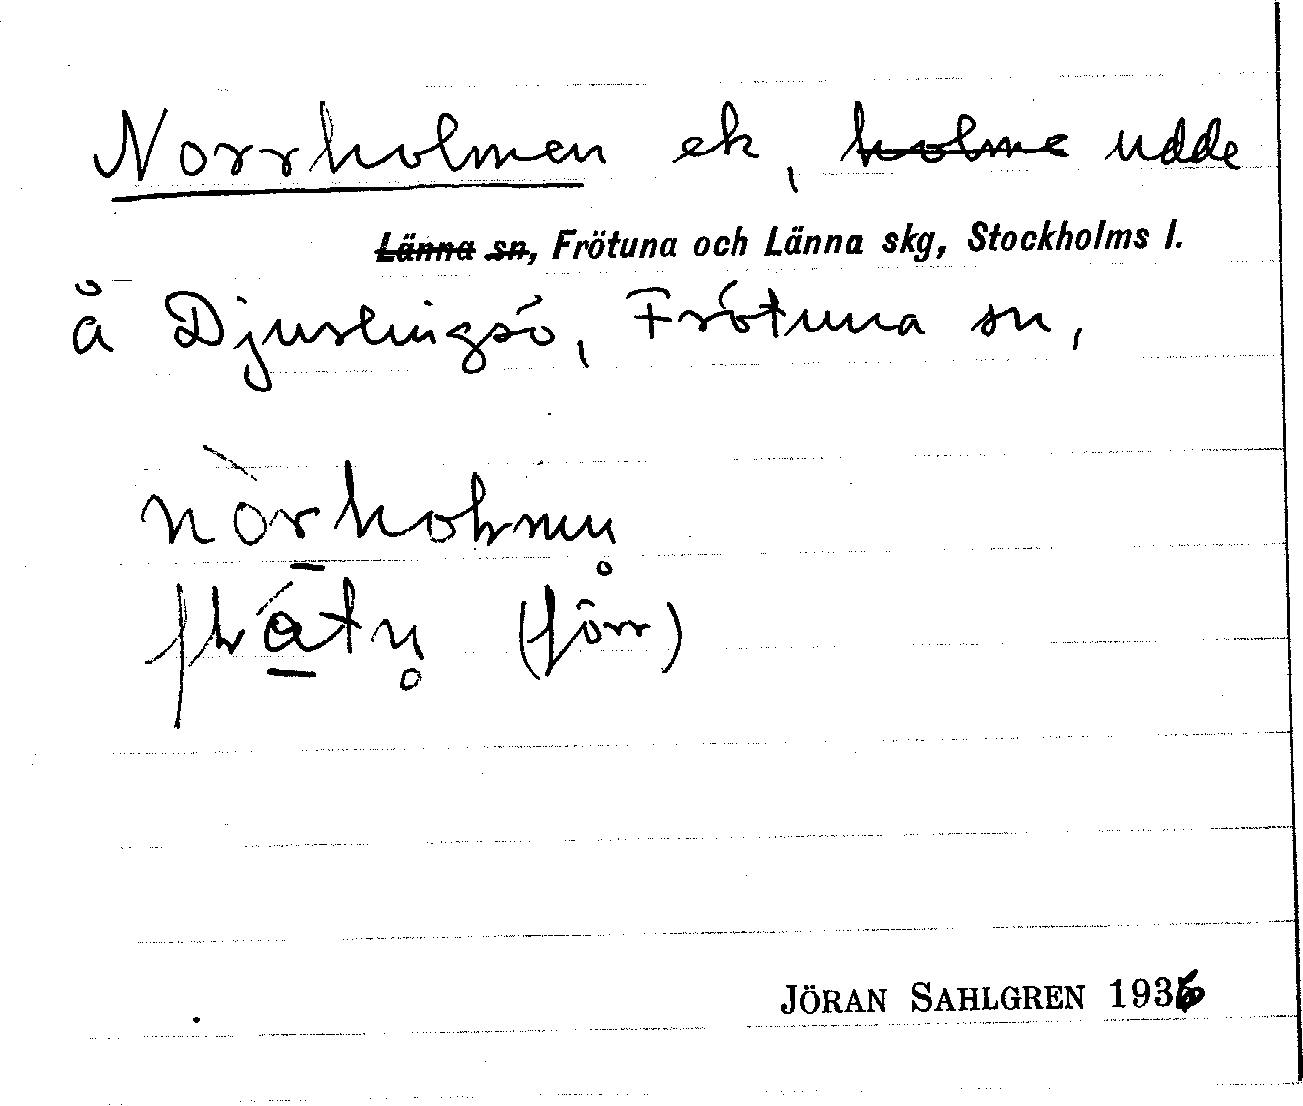 Norrholmen ek, holme udde
Länna sn, Frötuna och Länna skg, Stockholms l.
å Djurslingsö, Frötuna sn,
(förr)
JÖRAN SAHLGREN 1936